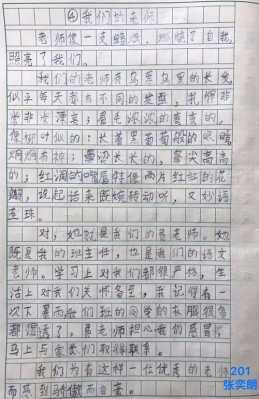 ④我们的老师
老师像一支蜡烛，燃烧了自我，
照亮了我们。
我们的老师有乌黑乌黑的长发，
似乎每天都有不同的发型，我师非
常非常漂亮：眉毛浓浓的弯弯的，
像柳叶似的；长着黑葡萄般的眼睛
炯炯有神；长长的，鼻尖高高
的；红润的嘴唇就像两片红红的花
瓣，说起话来既婉转动听，又妙语
连珠。
对，她就是我们的老师。她
既是我的班主任，也是我们的语文
老师。学习上对我们都很严格，生
活上对我们关怀备至，我记得有一
次下暴雨我们班的同学的衣服很多
都湿透了，老师担心我们感冒
马上与家长们取得联系。
我们为有这样一位优秀的老师
而感到骄傲而自豪。
201
张奕朗